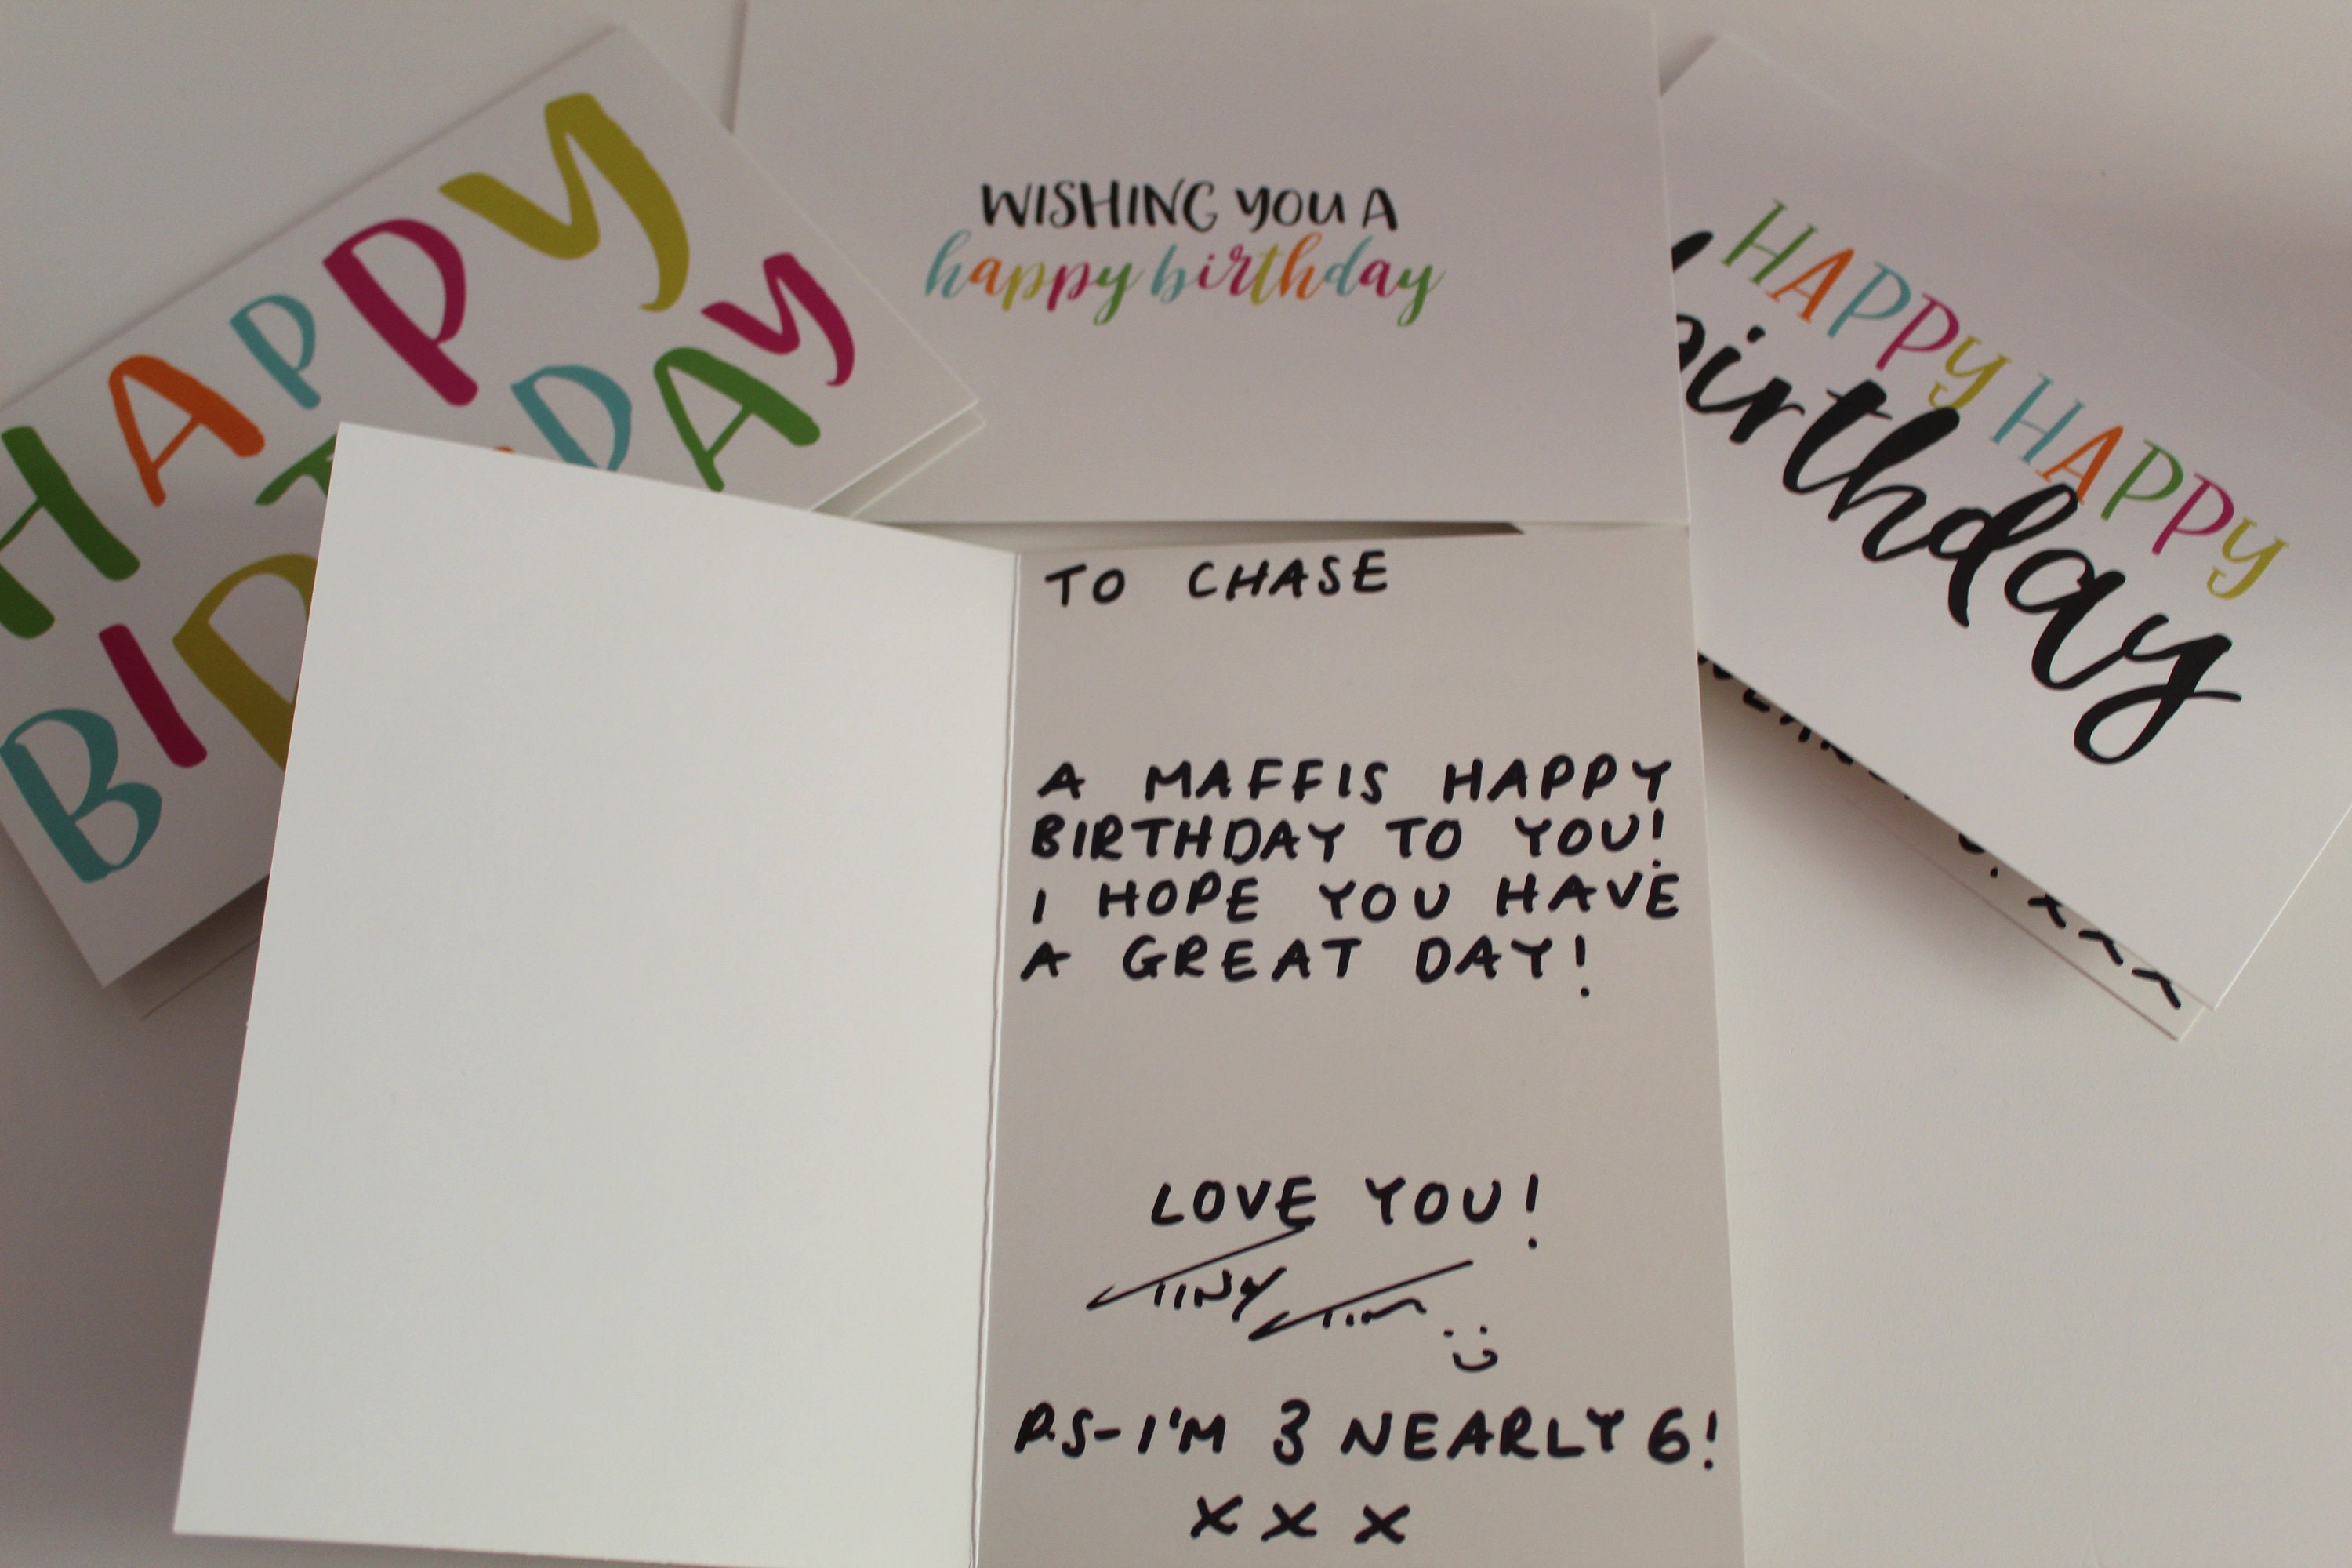 HAPPY
BI
DAY
WISHING YOU A
happy birthday
HAPPY HAPPY
birthday
TO CHASE
A MAFFIS HAPPY
BIRTHDAY TO YOU!
I HOPE YOU HAVE
A GREAT DAY!
LOVE YOU!
TINY TIM :)
P.S-I'M 3 NEARLY 6!
x x x